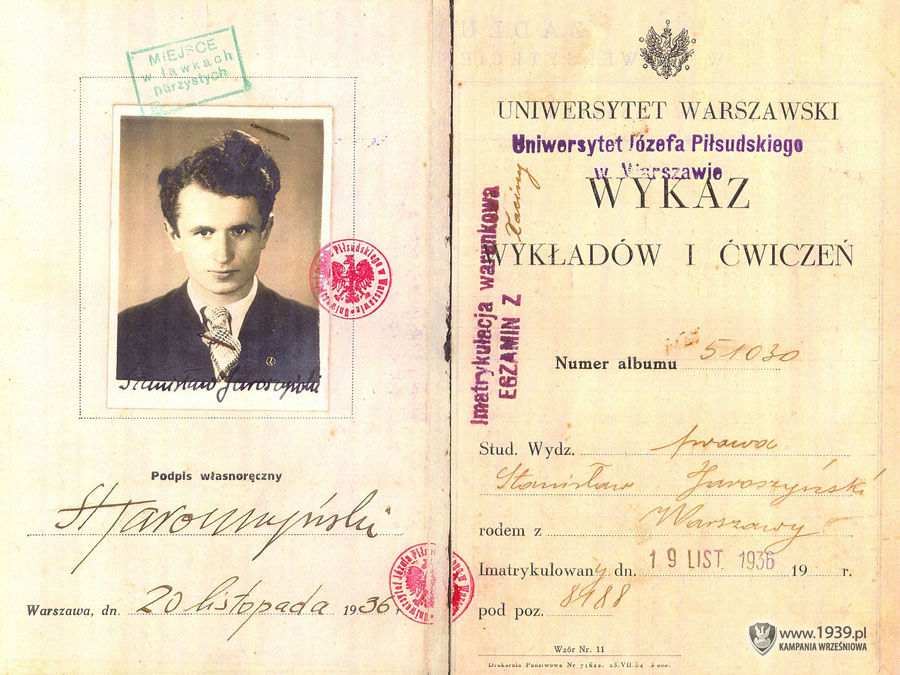 MIEJSCE
w ławkach
parzystych
Stanisław Jaroszyński
Podpis własnoręczny
St Jaroszyński
Warszawa, dn. 20 listopada 1936
UNIWERSYTET WARSZAWSKI
Uniwersytet Józefa Piłsudskiego
w Warszawie
WYKAZ
WYKŁADÓW I ĆWICZEŃ
Imatrykulacja warunkowa
EGZAMIN Z
łaciny
Numer albumu 51030
Stud. Wydz. prawa
Stanisław Jaroszyński
rodem z Warszawy
Imatrykulowany dn. 19 LIST. 1936 19 r.
pod poz. 8988
Wzór Nr. 11
Drukarnia Państwowa Nr 71622. 25.VII.34
www.1939.pl
KAMPANIA WRZEŚNIOWA